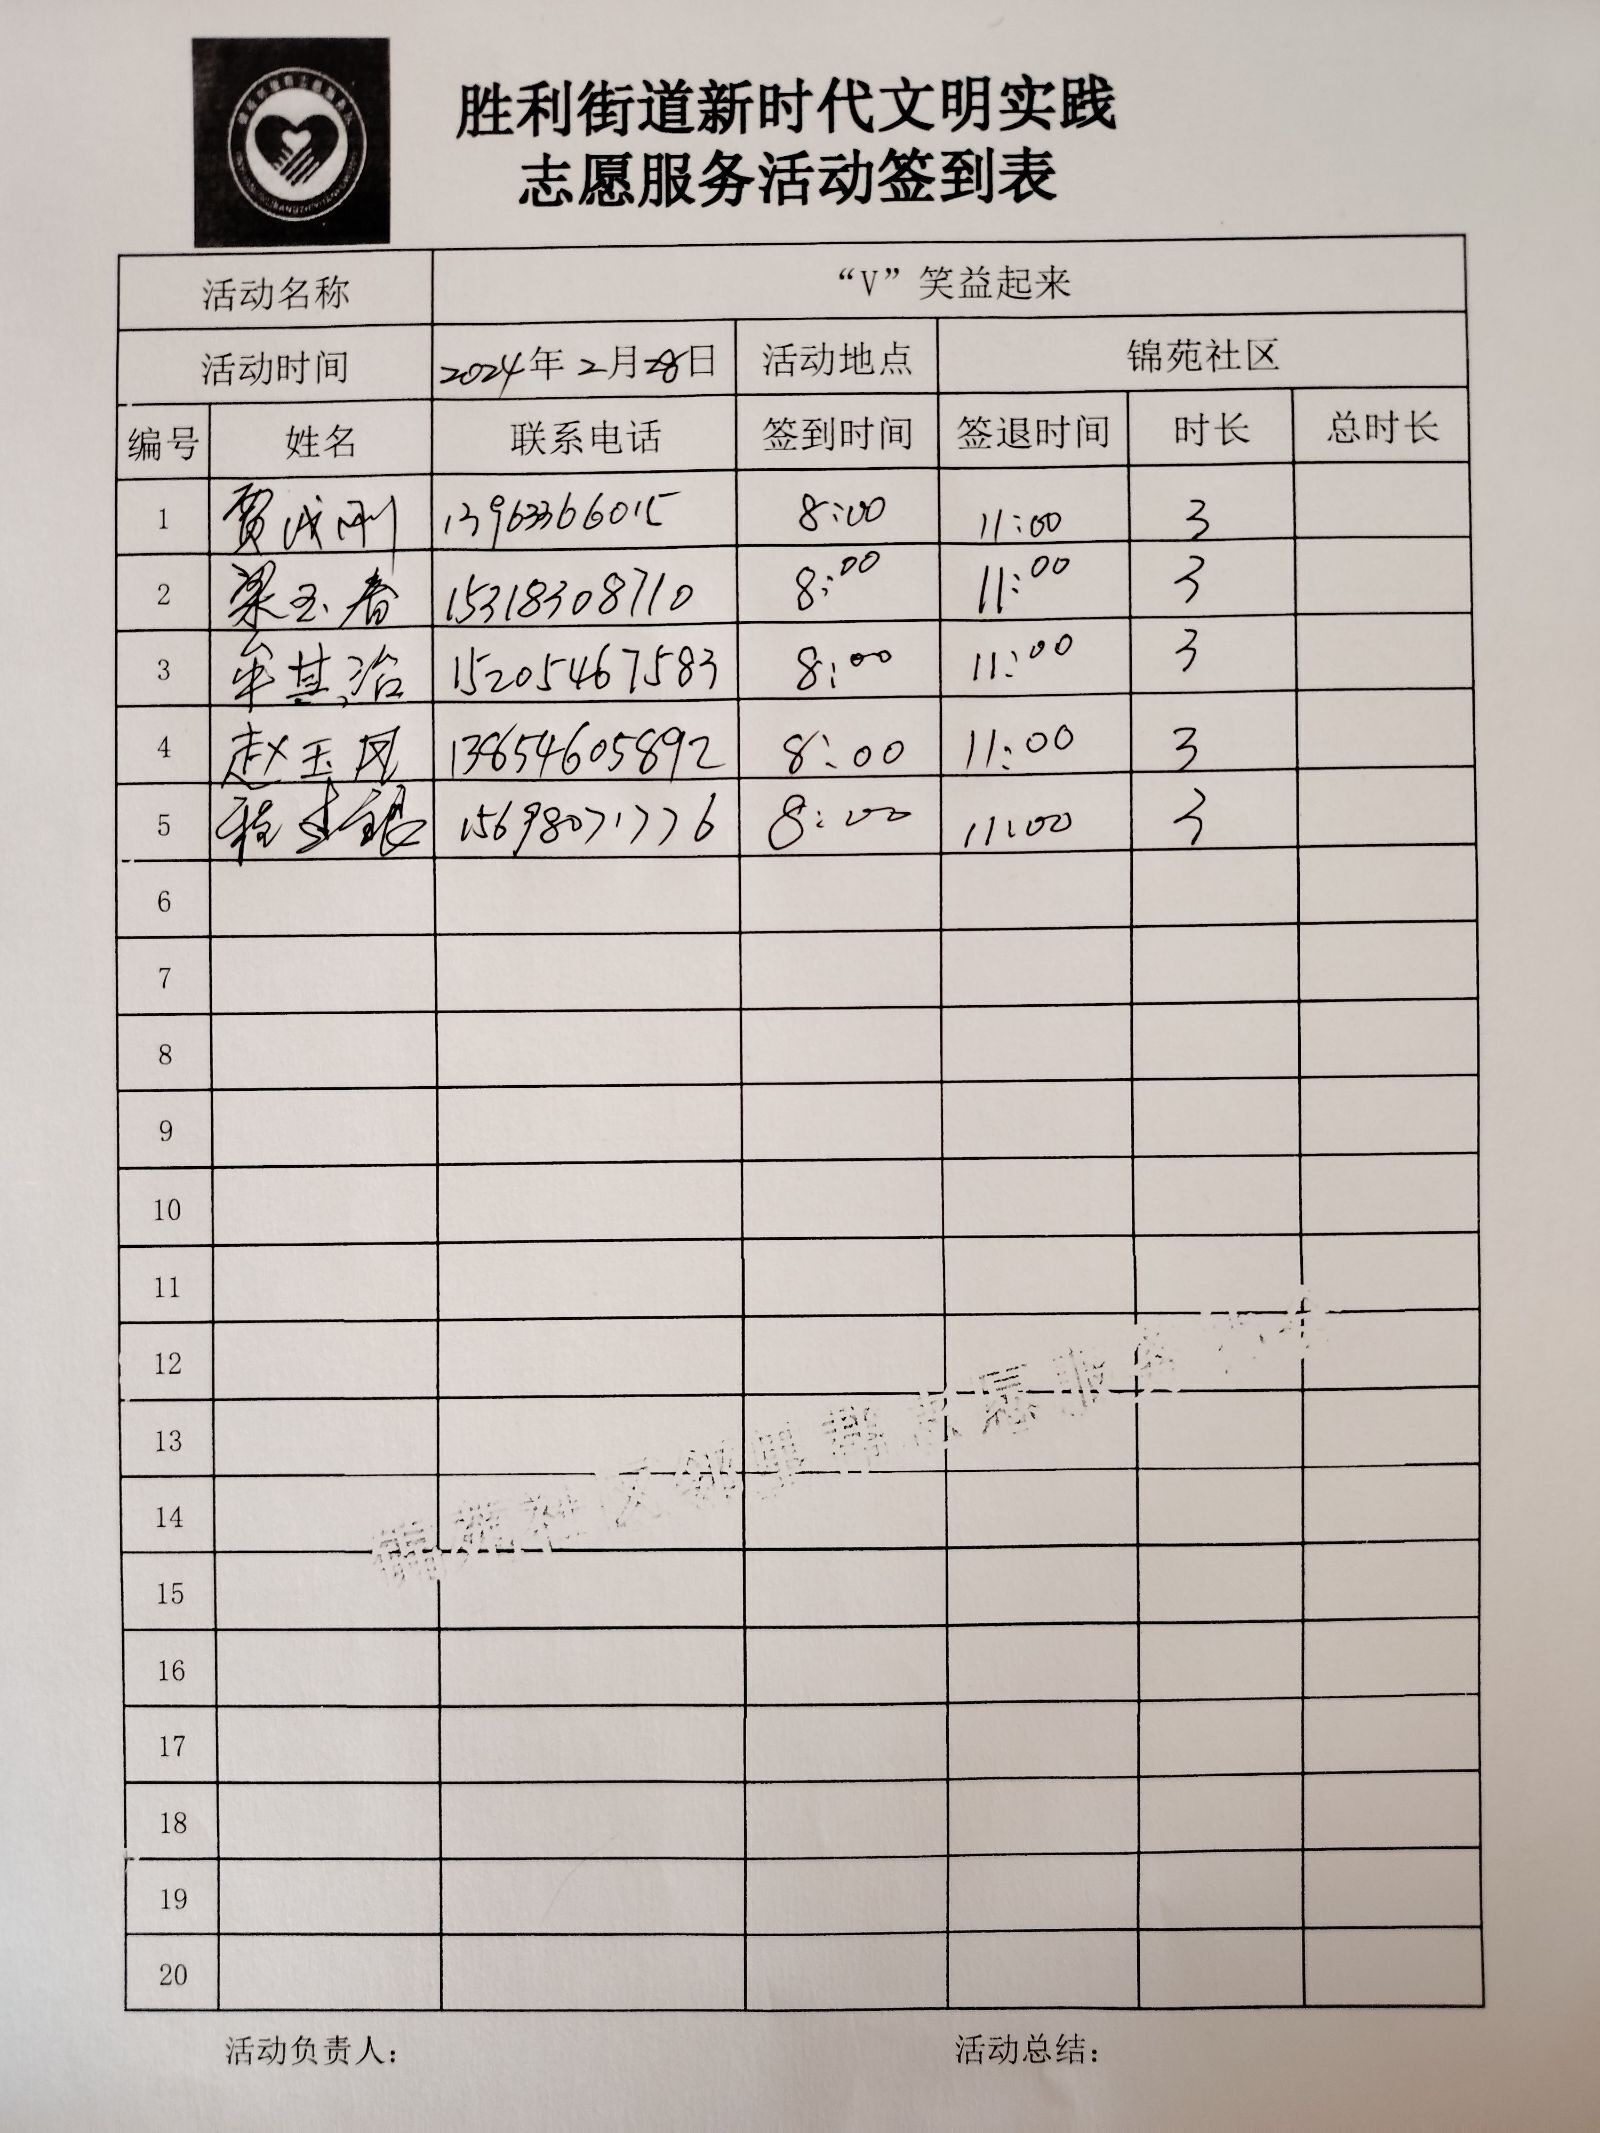 胜利街道新时代文明实践
志愿服务活动签到表
活动名称 “V”笑益起来
活动时间 2024年2月28日 活动地点 锦苑社区
编号 姓名 联系电话 签到时间 签退时间 时长 总时长
1 贾成刚 13963366015 8:00 11:00 3
2 梁玉春 15318308710 8:00 11:00 3
3 牟其治 15205467583 8:00 11:00 3
4 赵玉凤 13654605892 8:00 11:00 3
5 程银 15698071776 8:00 11:00 3
6
7
8
9
10
11
12
13
14
15
16
17
18
19
20
锦苑社区邻里帮志愿服务
活动负责人： 活动总结：